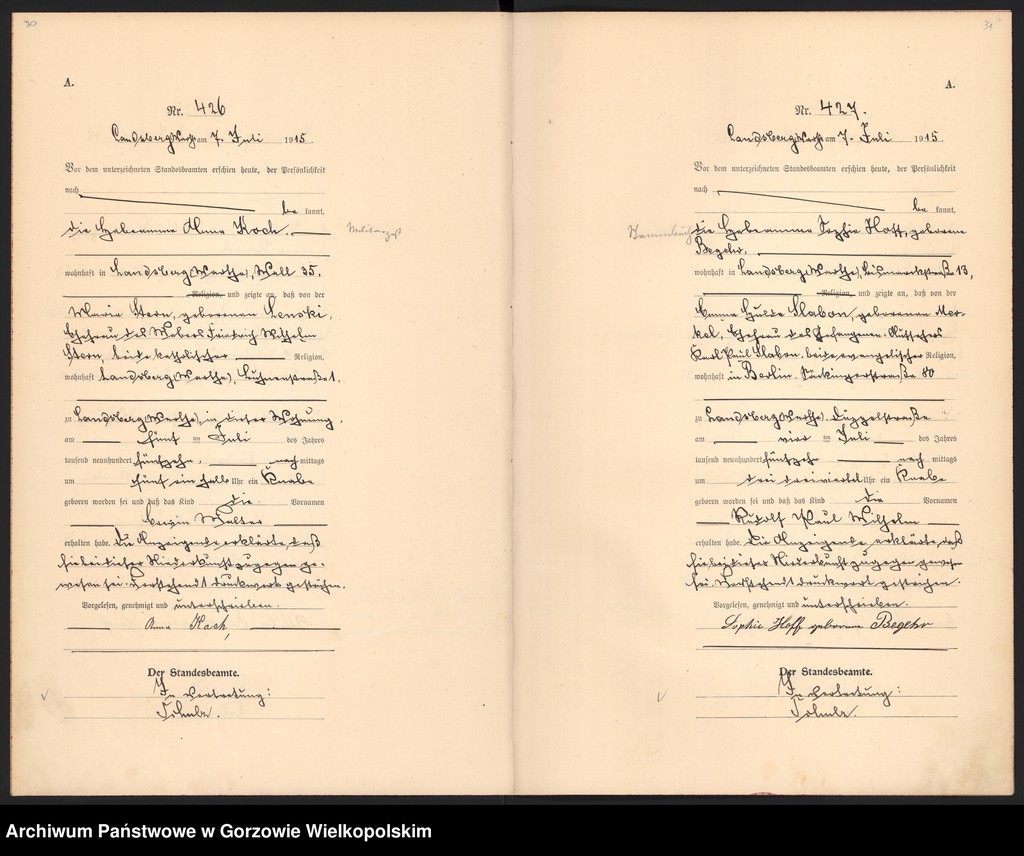 30
A.
Nr. 426
Landsberg Warthe am 7. Juli 1915.
Vor dem unterzeichneten Standesbeamten erschien heute, der Persönlichkeit
nach
be kannt,
die Hebamme Anna Koch.
wohnhaft in Landsberg (Warthe), Wall 35,
Religion, und zeigte an, daß von der
Maria Stern, geborenen Lenski,
Ehefrau des Webers Friedrich Wilhelm
Stern, beide katholischer Religion,
wohnhaft Landsberg (Warthe), 1,
zu Landsberg (Warthe), in dieser Wohnung,
am fünf ten Juli des Jahres
tausend neunhundert fünfzehn, nach mittags
um fünf ein halb Uhr ein Knabe
geboren worden sei und daß das Kind die Vornamen
Erwin Walter
erhalten habe. Die Anzeigende erklärte, daß
sie bei dieser Niederkunft zugegen ge-
wesen sei. Vorstehend 1 Druckwort gestrichen.
Vorgelesen, genehmigt und unterschrieben.
Anna Koch,
Der Standesbeamte.
In Vertretung:
31
A.
Nr. 427.
Landsberg Warthe am 7. Juli 1915.
Vor dem unterzeichneten Standesbeamten erschien heute, der Persönlichkeit
nach
be kannt,
Stammbuch
die Hebamme Sophie Hoff, geborene
Begehr,
wohnhaft in Landsberg (Warthe), Bismarckstraße 13,
Religion, und zeigte an, daß von der
Emma Hulda Slabon, geborenen Mer-
kel, Ehefrau des
Karl Paul Slabon, beide evangelischer Religion,
wohnhaft in Berlin, Säckingerstraße 80
zu Landsberg (Warthe), Düppelstraße
am vier ten Juli des Jahres
tausend neunhundert fünfzehn nach mittags
um drei dreiviertel Uhr ein Knabe
geboren worden sei und daß das Kind die Vornamen
Rudolf Paul Wilhelm
erhalten habe. Die Anzeigende erklärte, daß
sie bei dieser Niederkunft zugegen gewesen
sei. Vorstehend 1 Druckwort gestrichen.
Vorgelesen, genehmigt und unterschrieben.
Sophie Hoff geborene Begehr
Der Standesbeamte.
In Vertretung:
Archiwum Państwowe w Gorzowie Wielkopolskim